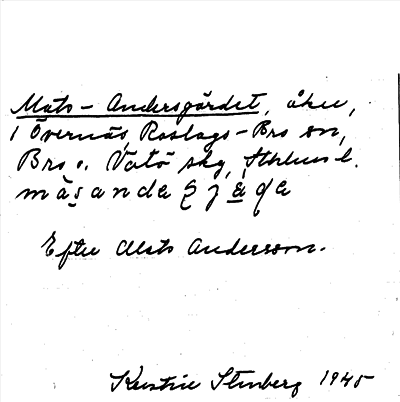 Mats-Andersgärdet, åker,
i Övernäs, Roslags-Bro sn,
Bro o. Vätö skg, Sthlms l.
Efter Mats Andersson.
Kerstin Stenberg 1945